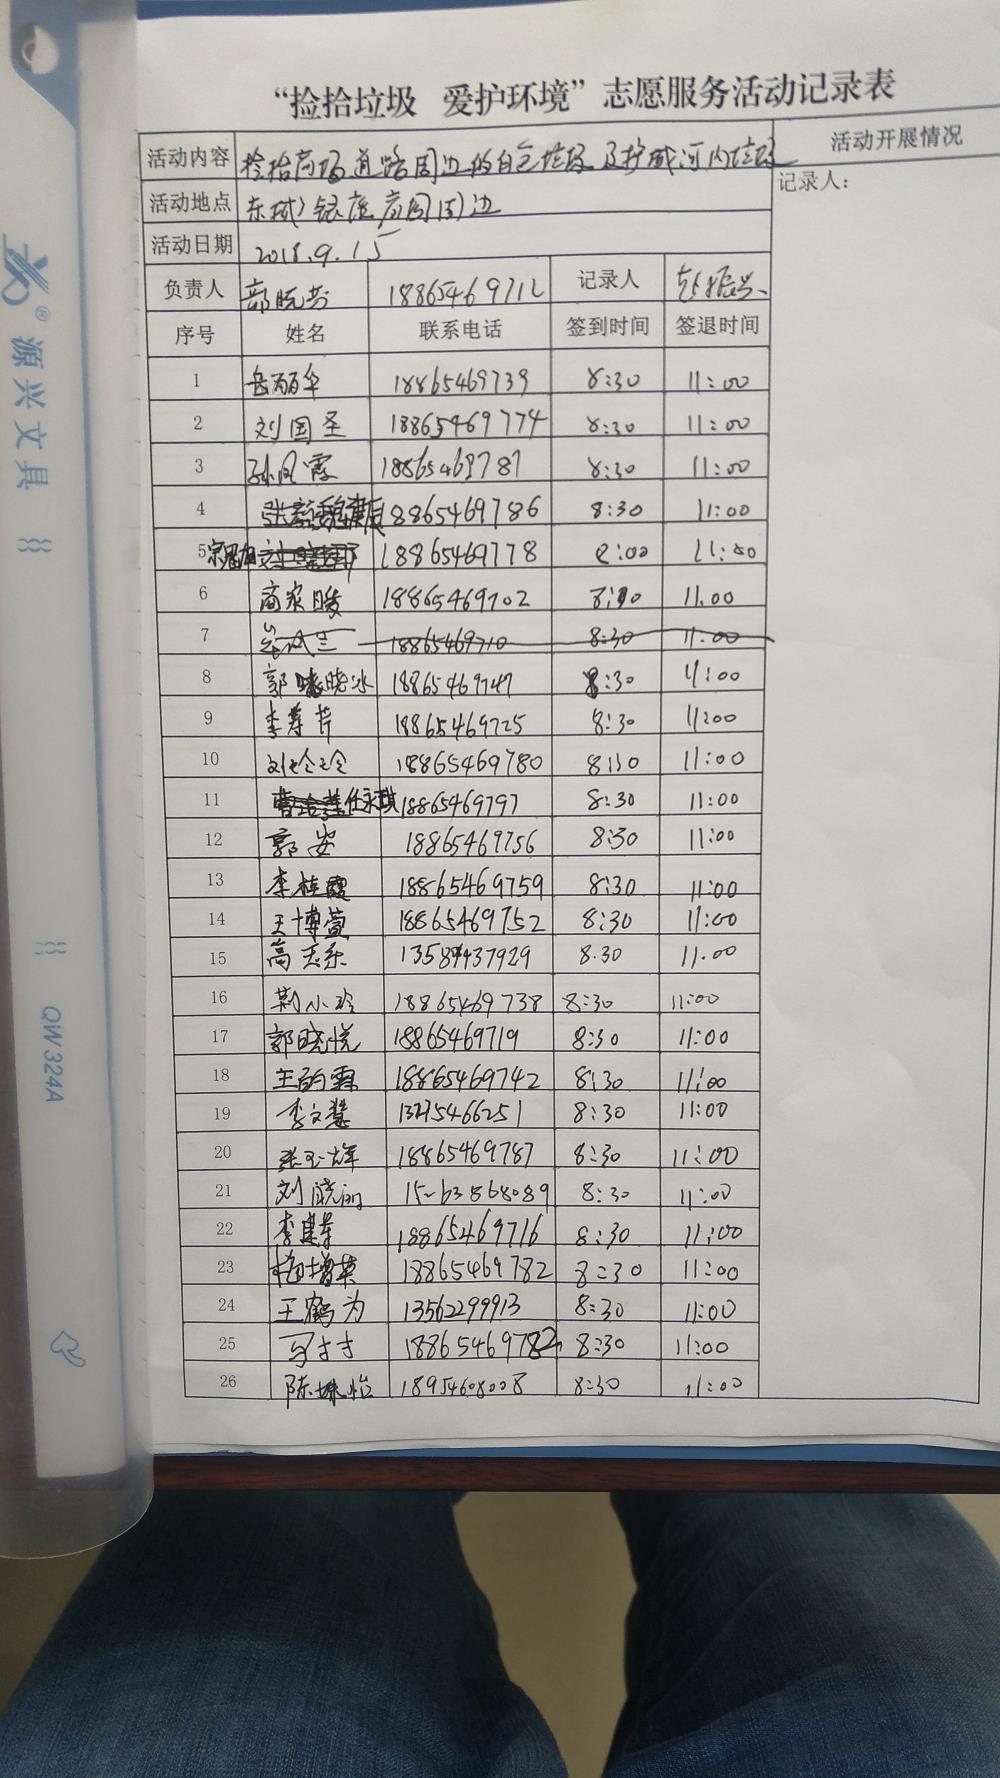 “捡拾垃圾 爱护环境”志愿服务活动记录表
活动内容 捡拾商场道路周边的白色垃圾及护城河内垃圾 活动开展情况
活动地点 东城银座商圈周边 记录人:
活动日期 2018.9.15
负责人 郭晓芳 18865469712 记录人 赵振兴
序号 姓名 联系电话 签到时间 签退时间
1 岳丽伞 18865469739 8:30 11:00
2 刘国圣 18865469774 8:30 11:00
3 孙凤霞 18865469787 8:30 11:00
4 18865469786 8:30 11:00
5 18865469778 11:00
6 商家暖 18865469702 11.00
7 18865469710 8:30 11:00
8 郭晓冰 18865469747 8:30 11:00
9 李寿芹 18865469725 8:30 11:00
10 刘玲玲 18865469780 8:30 11:00
11 任永琪 18865469797 8:30 11:00
12 郭安 18865469756 8:30 11:00
13 李桂霞 18865469759 8:30 11:00
14 王博萱 18865469752 8:30 11:00
15 高天乐 8.30 11.00
16 荆小玲 18865469738 8:30 11:00
17 郭晓悦 18865469719 8:30 11:00
18 18865469742 8:30 11:00
19 李文慧 8:30 11:00
20 张玉辉 18865469787 8:30 11:00
21 刘晓丽 8:30 11:00
22 李建军 18865469716 8:30 11:00
23 梅增英 18865469782 8:30 11:00
24 王鹤为 13562299913 8:30 11:00
25 18865469782 8:30 11:00
26 陈姝怡 18954608008 8:30 11:00
® 源兴文具
QW324A